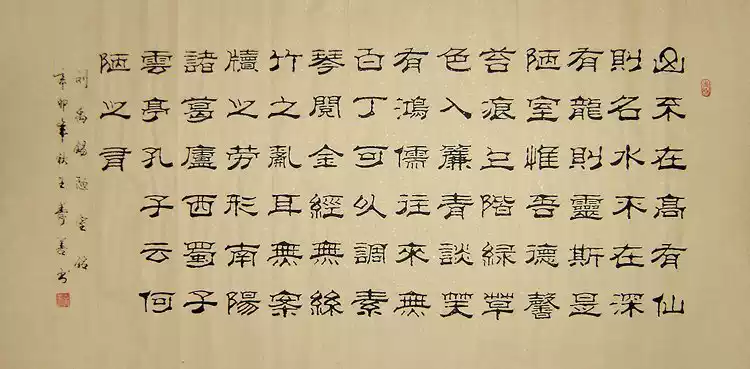 山不在高有仙
則名水不在深
有龍則靈斯是
陋室惟吾德馨
苔痕上階綠草
色入簾青談笑
有鴻儒往來無
白丁可以調素
琴閱金經無絲
竹之亂耳無案
牘之勞形南陽
諸葛廬西蜀子
雲亭孔子云何
陋之有
刘禹錫陋室铭
辛卯年秋王壽善书